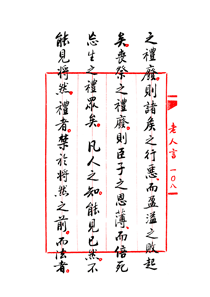 老人言 一〇八
之禮廢則諸矦之行惡而盈溢之敗起
矣喪祭之禮廢則臣子之恩薄而倍死
忘生之禮眾矣凡人之知能見已然不
能見將然禮者禁於將然之前而法者